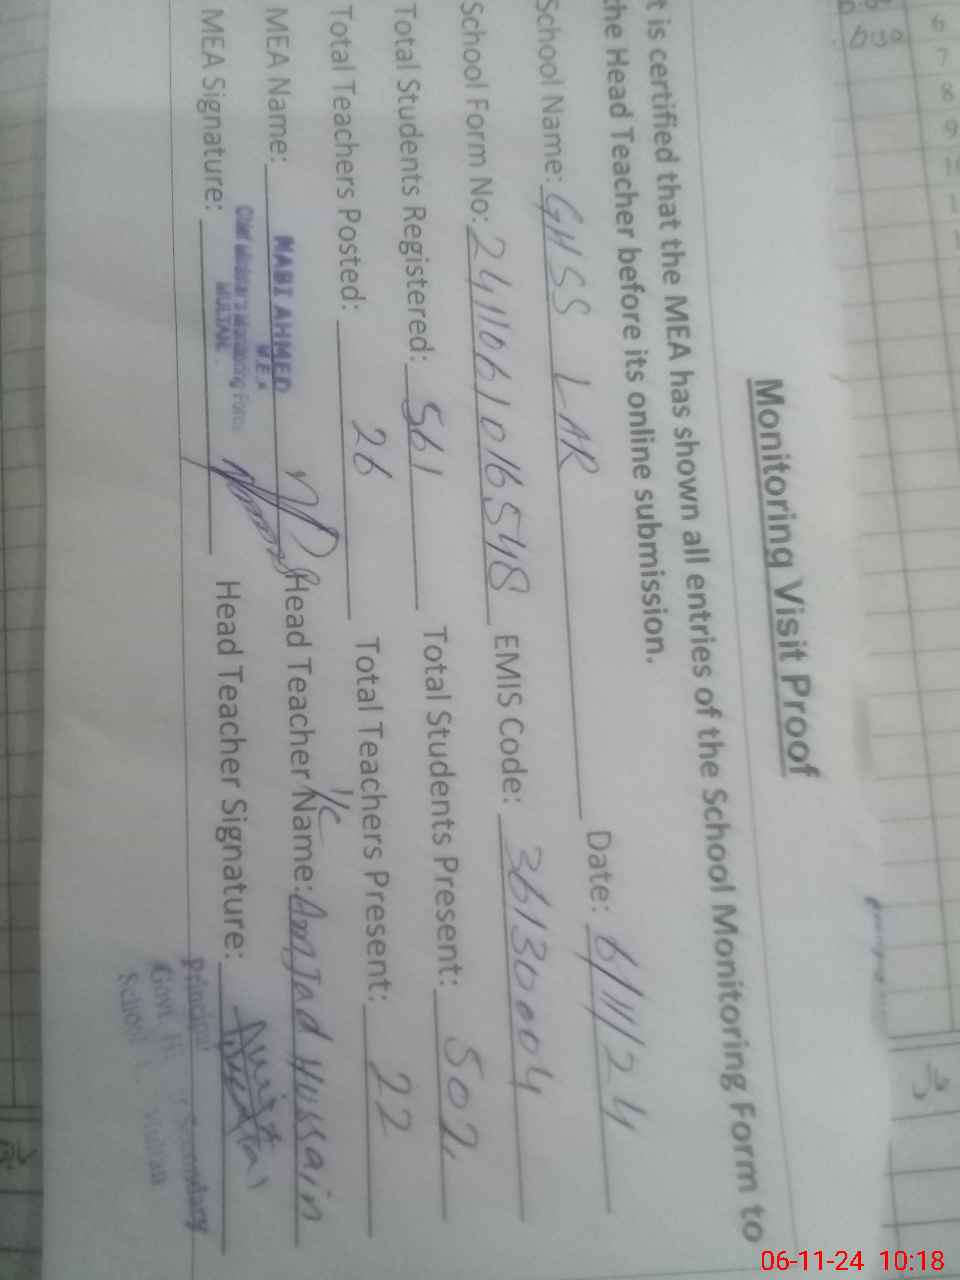 Monitoring Visit Proof
t is certified that the MEA has shown all entries of the School Monitoring Form to
the Head Teacher before its online submission.
School Name: GHSS LAR Date: 6/11/24
School Form No: 2411061016548 EMIS Code: 36130004
Total Students Registered: 561 Total Students Present: 502
Total Teachers Posted: 26 Total Teachers Present: 22
MEA Name: NABI AHMED Head Teacher Name: I/C Amjad Hussain
M.E.A
MEA Signature: Head Teacher Signature:
MULTAN.
Principal
Govt. Hi Secondary
School
6
7
8
9
06-11-24 10:18